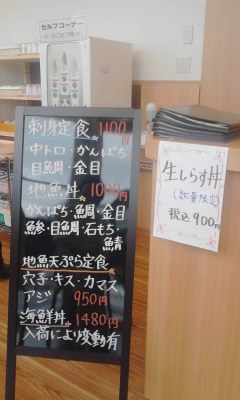 セルフコーナー
刺身定食 1100円
・中トロ・かんぱち
・目鯛・金目
地魚丼 1000円
かんぱち・鯛・金目
鯵・目鯛・石もち・
鯖
地魚天ぷら定食
穴子・キス・カマス
アジ 950円
海鮮丼 1480円
入荷により変動有
生しらす丼
(数量限定)
税込900円